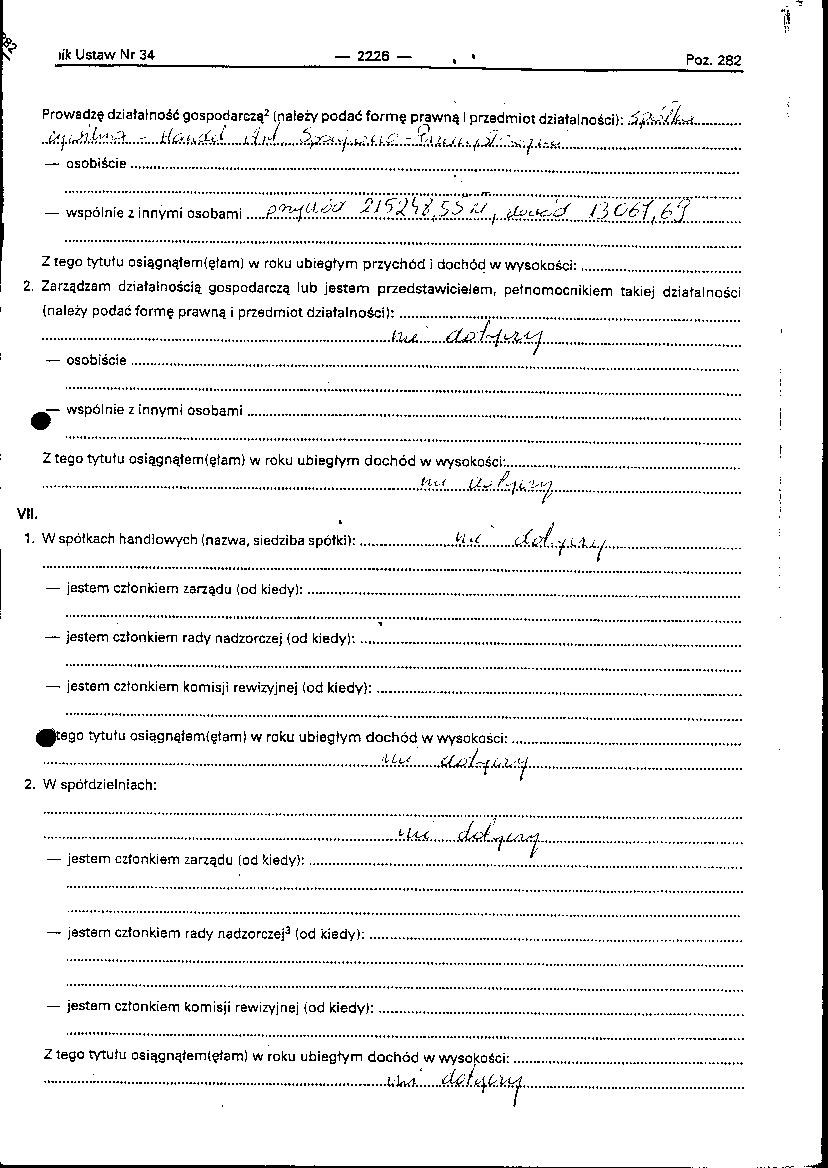 ik Ustaw Nr 34 — 2226 — Poz. 282
Prowadzę działalność gospodarczą² (należy podać formę prawną i przedmiot działalności): Spółka
cywilna - Handel Art. Spożywczo-Przemysłowymi
— osobiście
— wspólnie z innymi osobami przychód 215248,55 zł, dochód 13061,69
Z tego tytułu osiągnąłem(ęłam) w roku ubiegłym przychód i dochód w wysokości:
2. Zarządzam działalnością gospodarczą lub jestem przedstawicielem, pełnomocnikiem takiej działalności
(należy podać formę prawną i przedmiot działalności):
nie dotyczy
— osobiście
— wspólnie z innymi osobami
Z tego tytułu osiągnąłem(ęłam) w roku ubiegłym dochód w wysokości:
nie dotyczy
VII.
1. W spółkach handlowych (nazwa, siedziba spółki): nie dotyczy
— jestem członkiem zarządu (od kiedy):
— jestem członkiem rady nadzorczej (od kiedy):
— jestem członkiem komisji rewizyjnej (od kiedy):
tego tytułu osiągnąłem(ęłam) w roku ubiegłym dochód w wysokości:
nie dotyczy
2. W spółdzielniach:
nie dotyczy
— jestem członkiem zarządu (od kiedy):
— jestem członkiem rady nadzorczej³ (od kiedy):
— jestem członkiem komisji rewizyjnej (od kiedy):
Z tego tytułu osiągnąłem(ęłam) w roku ubiegłym dochód w wysokości:
nie dotyczy